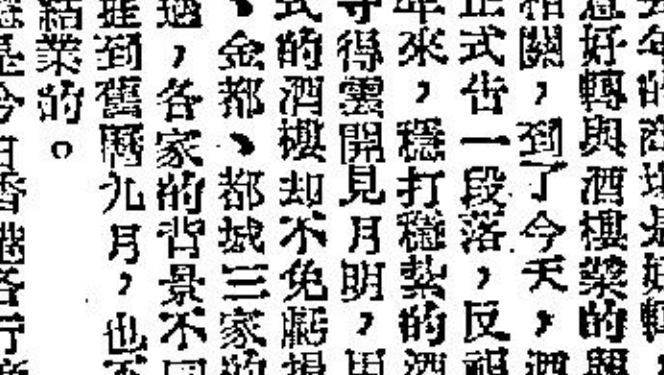 年的商場是好轉
好轉與酒樓業的興
相關，到了今天，酒
正式告一段落，反
年來，穩打穩紮的酒
守得雲開見月明，用
式的酒樓却不免虧損
、金都、都城三家的
過，各家的背景不同
捱到舊曆九月，也不
結業的。
是今日香港各行